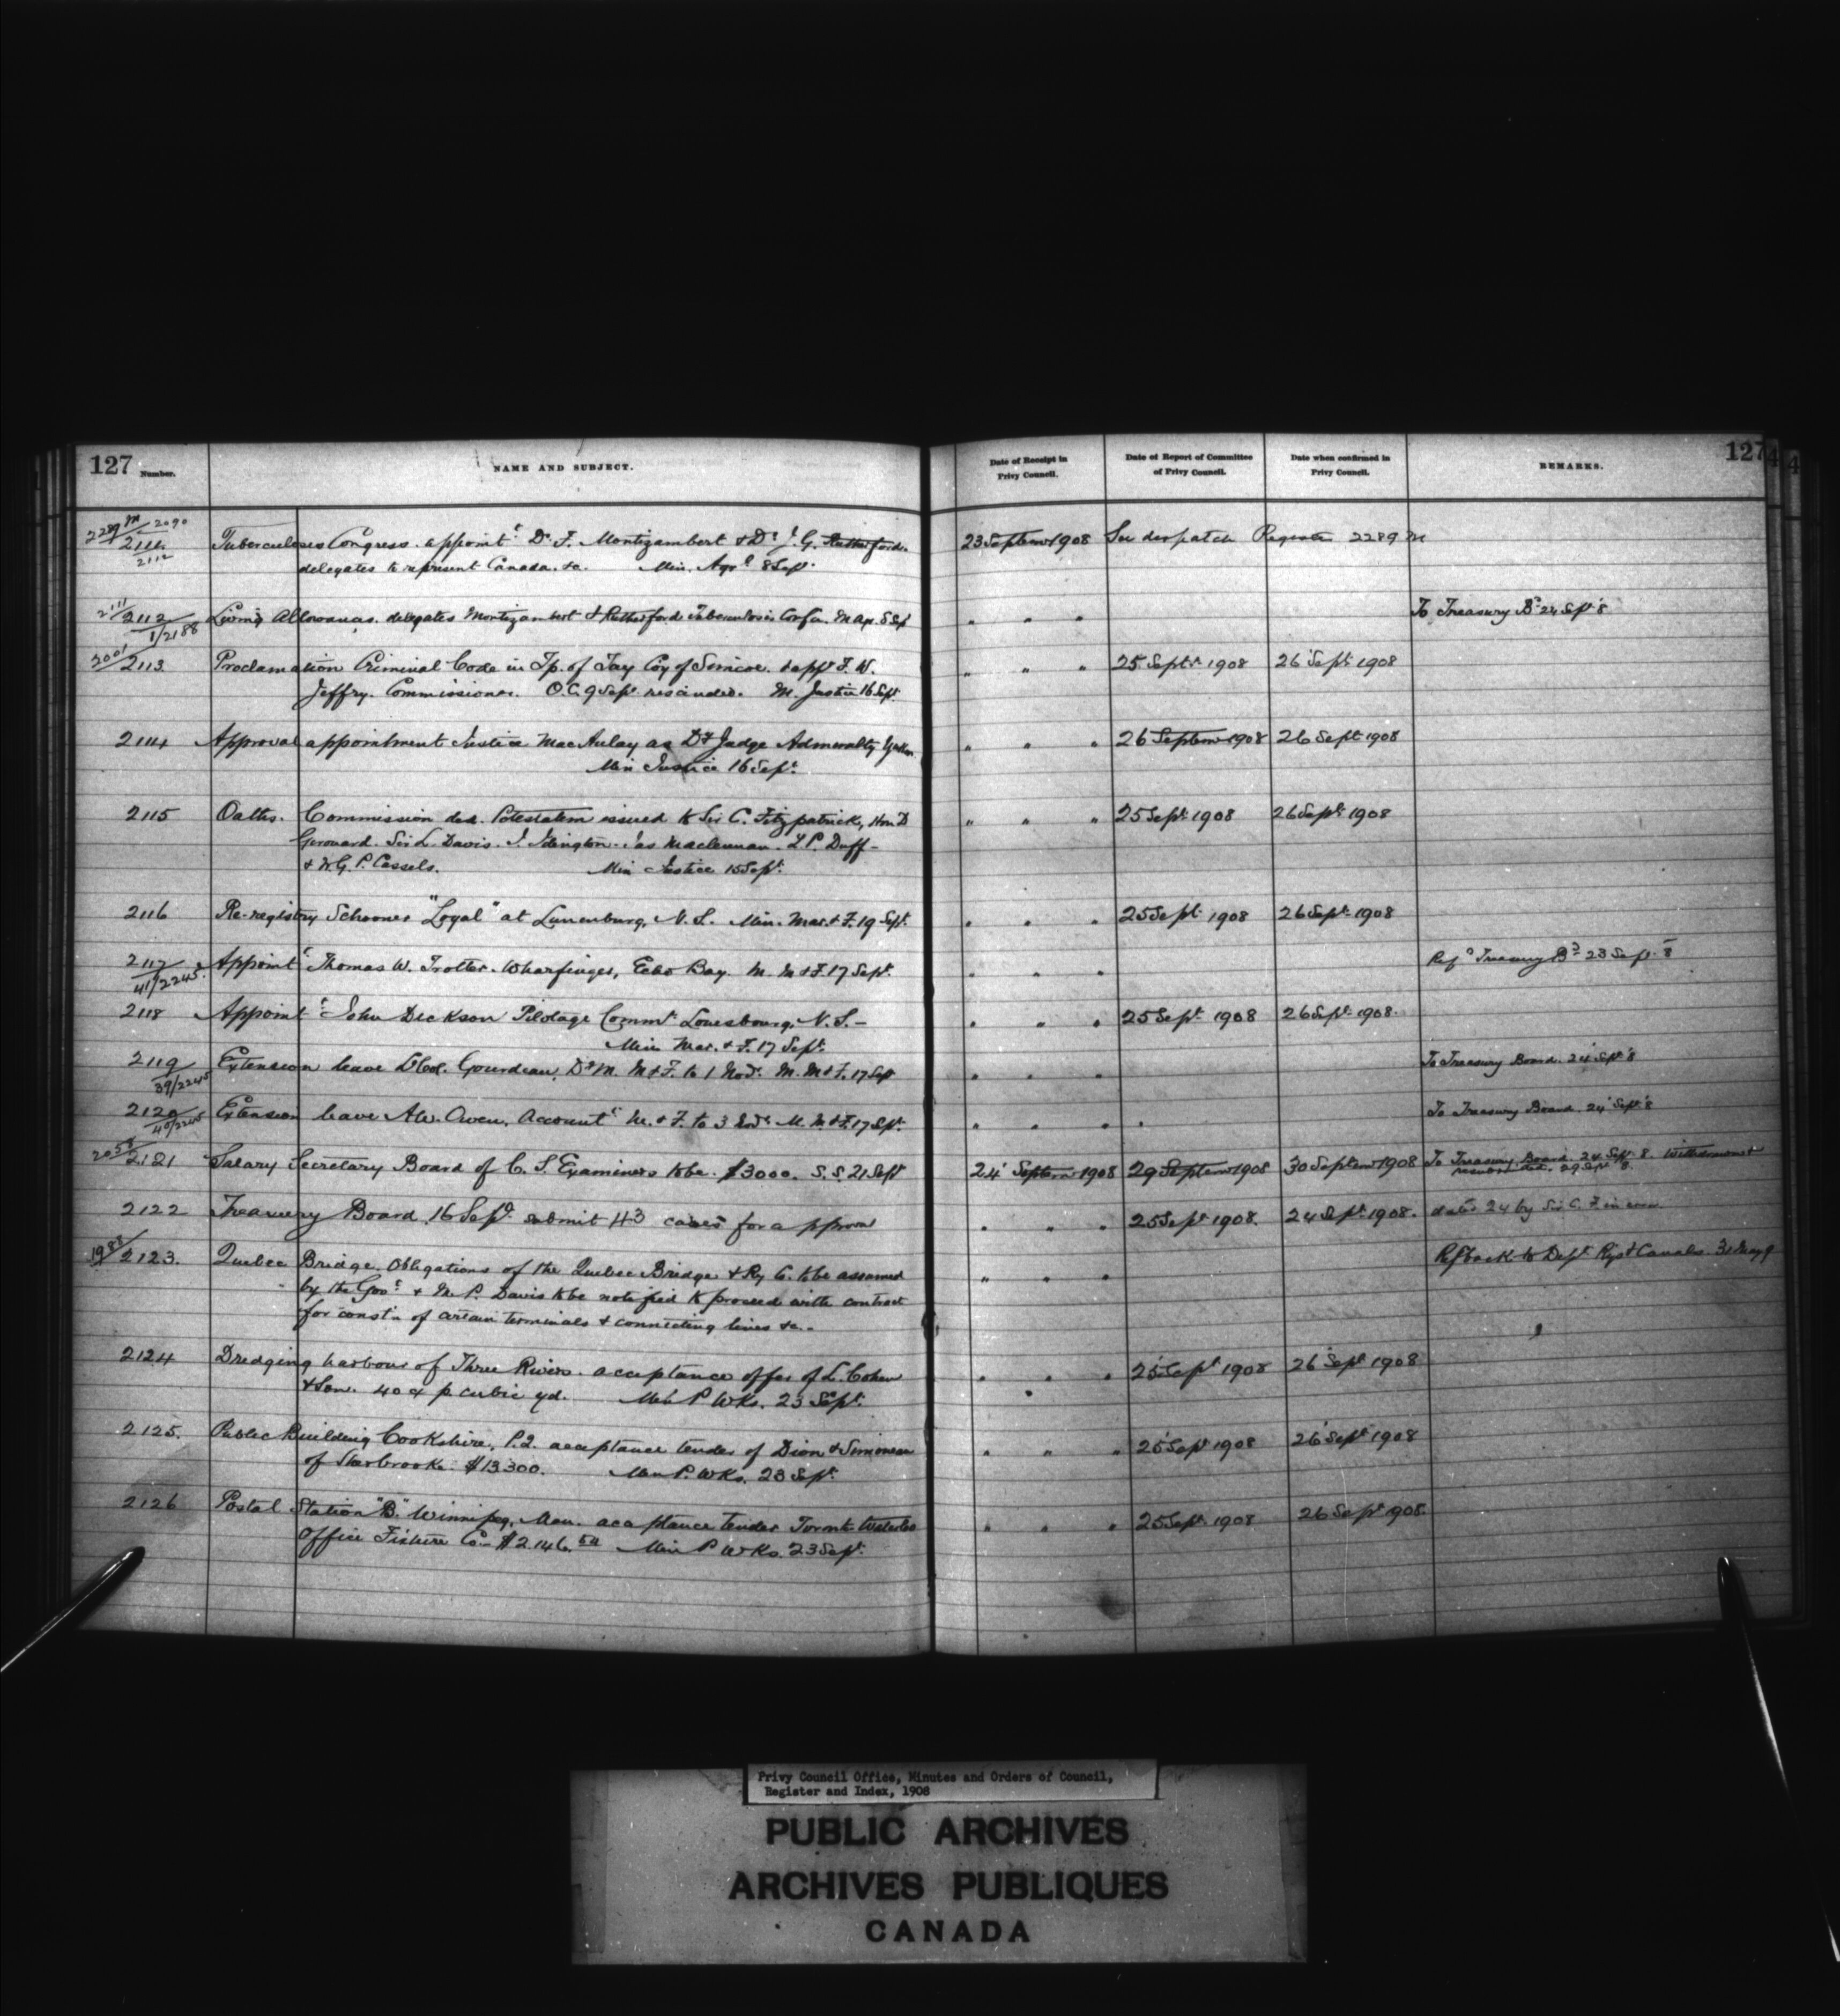 127 Number. NAME AND SUBJECT. Date of Receipt in Privy Council. Date of Report of Committee of Privy Council. Date when confirmed in Privy Council. REMARKS. 127
2289 M 2090
2111 Tuberculosis Congress. appoint.t Dr. F. Montizambert & Dr. J. G. Rutherford. 23 Septem 1908 See despatch Register 2289 M
2112 delegates to represent Canada. &c. Min. Agr. 8 Sept.
2111 2112 Living Allowances. delegates Montizambert & Rutherford Tuberculosis " " " To Treasury Bd 24 Sept. 8
1/2188
2001 2113 Proclamation Criminal Code in Tp. of Tay Coy of Simcoe. & app.t F. W. " " " 25 Septr 1908 26 Sept. 1908
Jeffry. Commissioner. O.C. 9 Sept rescinded. M. Justice 16 Sept.
2114 Approval appointment Justice MacAulay as Dy Judge Admiralty Yukon " " " 26 Septem 1908 26 Sept 1908
Min Justice 16 Sept.
2115 Oaths. Commission ded. Potestatem issued to Sir C. Fitzpatrick, Hon D " " " 25 Sept. 1908 26 Sept. 1908
Girouard. Sir L. Davis. J. Idington. Jas Maclennan. L P. Duff -
& W. G. P. Cassels. Min Justice 15 Sept.
2116 Re-registry Schooner "Loyal" at Lunenburg, N. S. Min. Mar. & F. 19 Sept. " " " 25 Sept. 1908 26 Sept. 1908
2117 Appoint.t Thomas W. Trotter. Wharfinger, Echo Bay. M. M & F. 17 Sept. " " " Refd Treasury Bd 23 Sept. 8
41/2245
2118 Appoint.t John Dickson Pilotage Commr Louisbourg, N. S. - " " " 25 Sept. 1908 26 Sept. 1908.
Min Mar. & F. 17 Sept.
2119 Extension leave Lt Col. Gourdeau, Dy M. M & F. to 1 Nov. M. M & F. 17 Sept " " " To Treasury Board. 24 Sept. 8
39/2245
2120 Extension leave A.W. Owen, Account.t M. & F. to 3 M. M. & F. 17 Sept. " " " To Treasury Board 24 Sept. 8
40/2245
2121 Salary Secretary Board of C. S. Examiners to be. $3000. S. S. 21 Sept 24 Septem 1908 29 Septem 1908 30 Septem 1908 To Treasury Board. 24 Sept. 8. Withdrawn
29 Sept 8.
2122 Treasury Board 16 Sept. submit 43 cases for approval " " " 25 Sept 1908. 24 Sept. 1908. dated 24 by Sir C. F in error.
1988 2123. Quebec Bridge. Obligations of the Quebec Bridge & Ry Co. to be assumed " " " Ref back to Dept. Rys & Canals. 31 May 9
by the Govt & M. P. Davis to be notified to proceed with contract
for const'n of certain terminals & connecting lines &c. -
2124 Dredging harbour of Three Rivers. acceptance offer of L. Cohen " " " 25 Sept 1908 26 Sept 1908
& Son. 40 c p cubic yd. Min P Wks. 23 Sept.
2125. Public Building Cookshire, P.Q. acceptance tender of Dion & Simoneau " " " 25 Sept 1908 26 Sept 1908
of Sherbrooke. $13,300. Min P. Wks. 23 Sept.
2126 Postal Station "B." Winnipeg, Man. acceptance tender Toronto " " " 25 Sept. 1908 26 Sept 1908.
Office Fixture Co. $2.146.50 Min P Wks. 23 Sept.
Privy Council Office, Minutes and Orders of Council,
Register and Index, 1908
PUBLIC ARCHIVES
ARCHIVES PUBLIQUES
CANADA